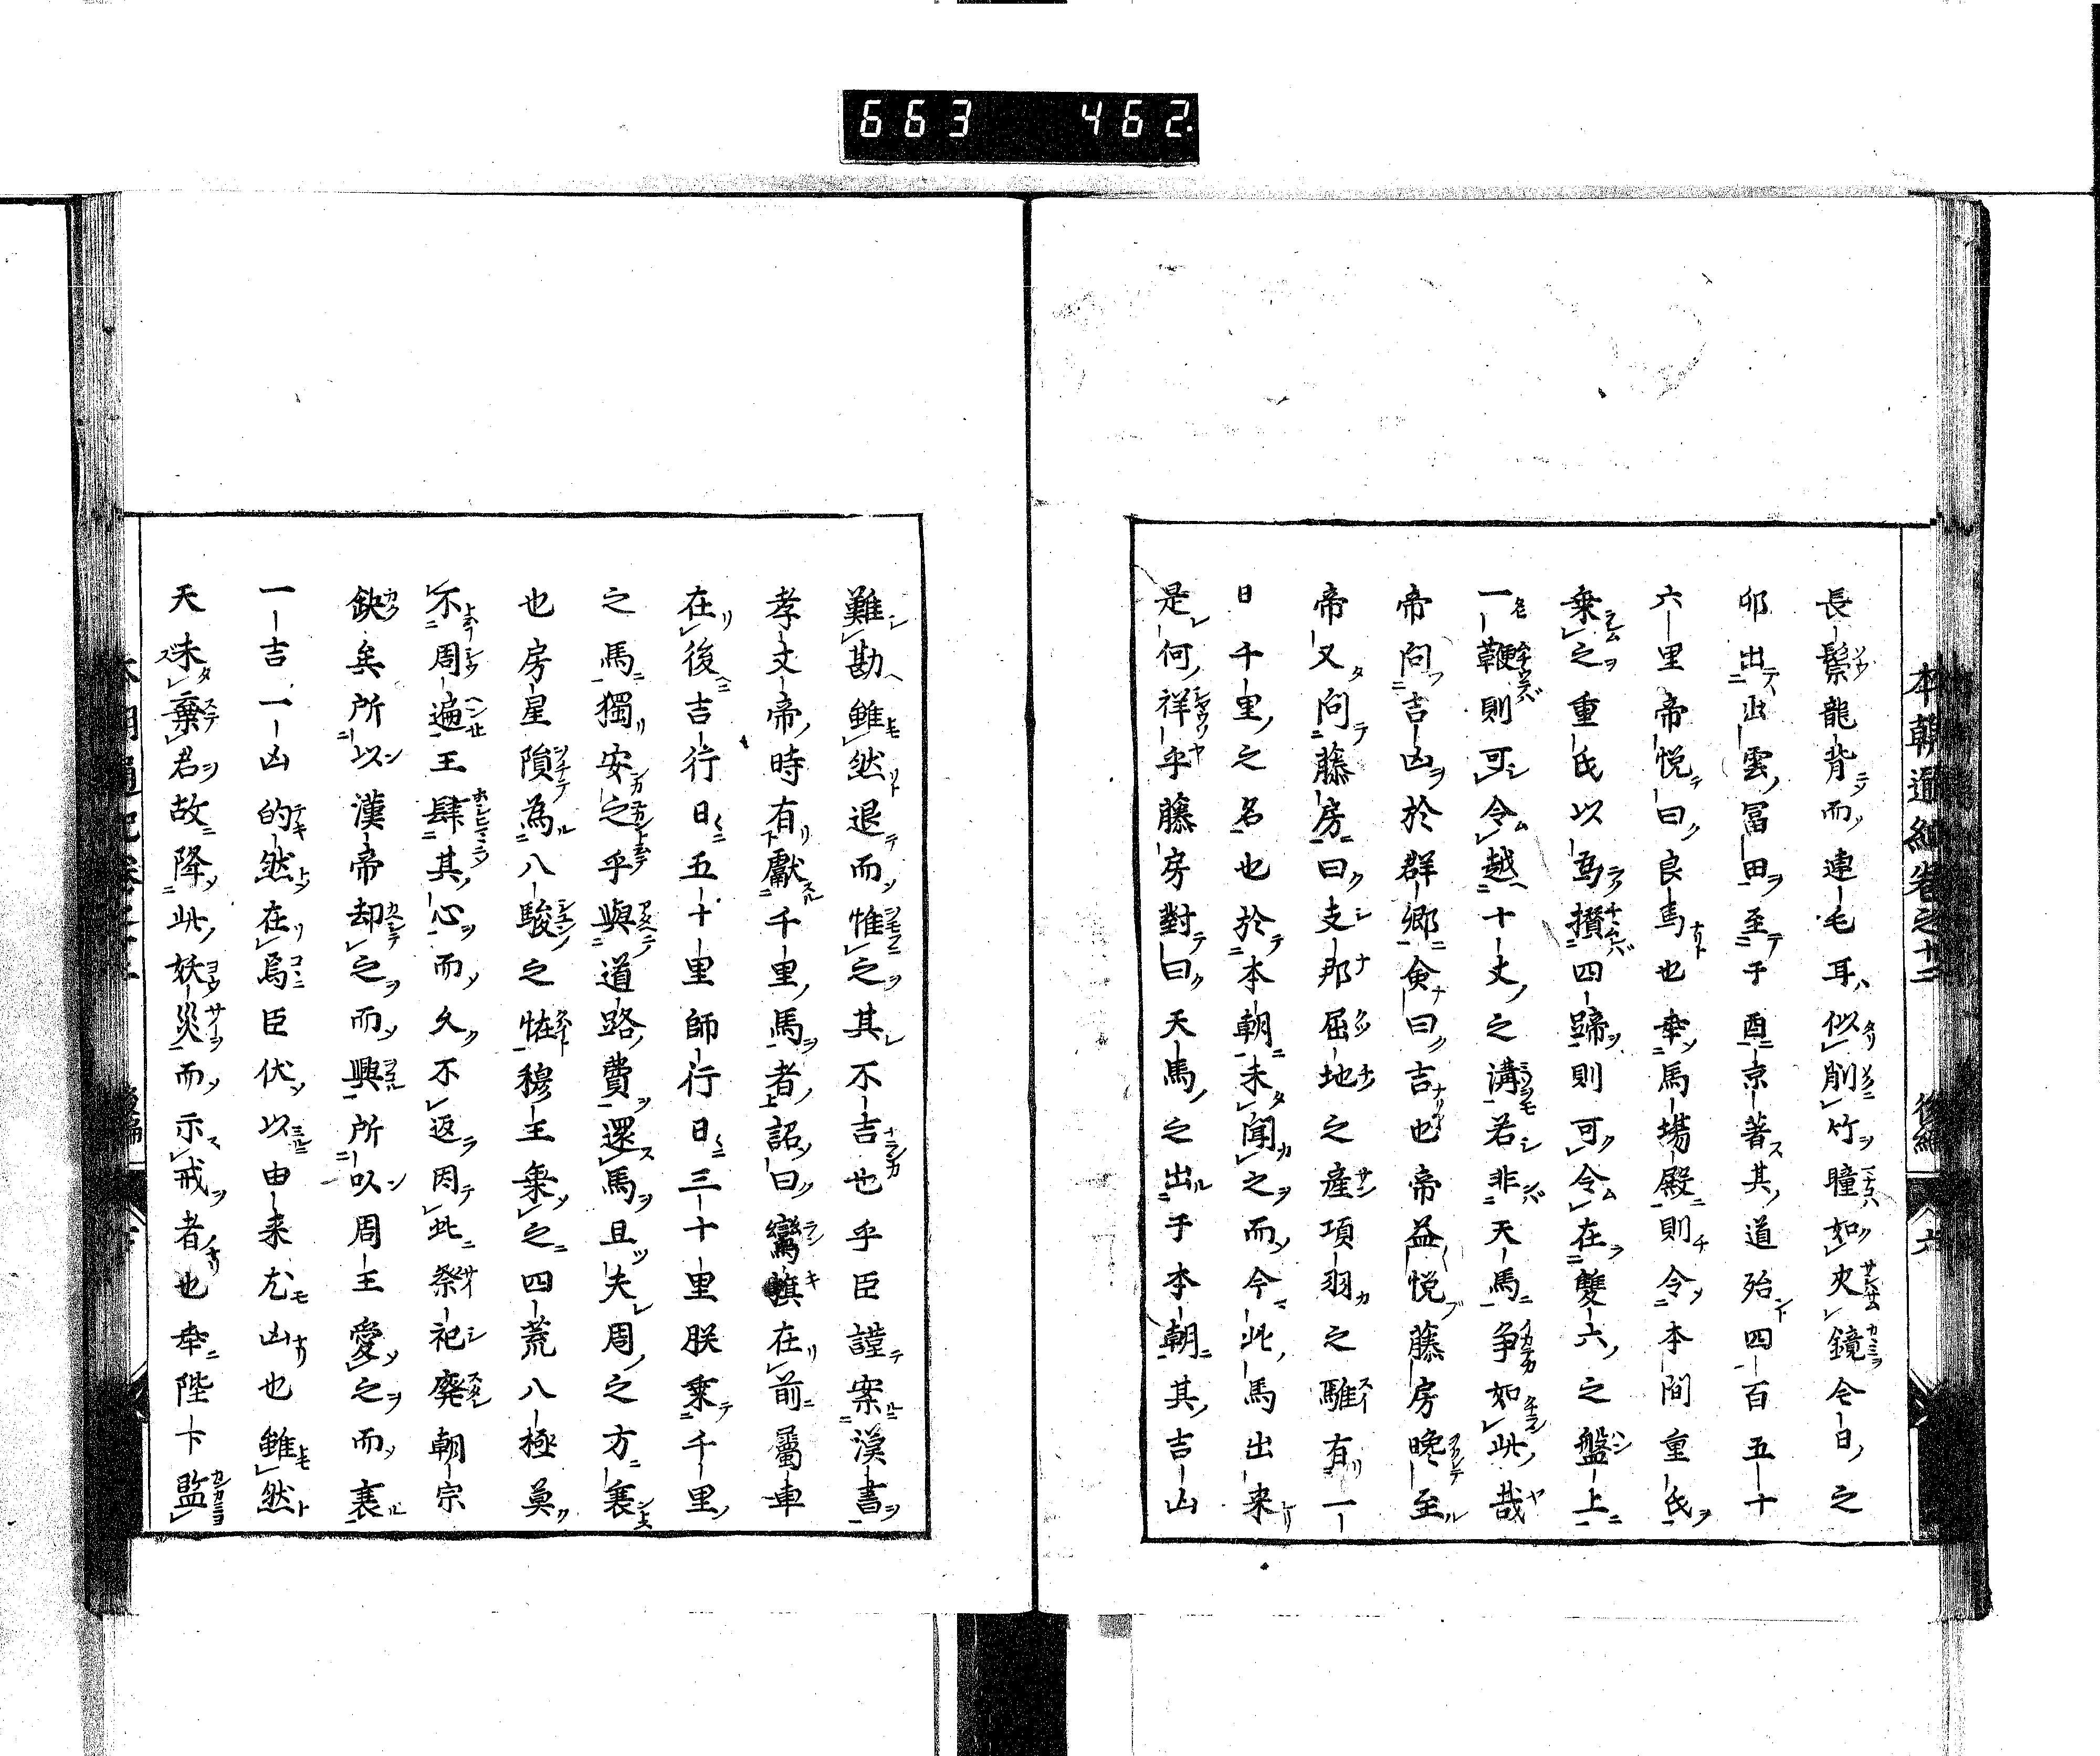 663 462
本朝通紀卷之十二 後編 六
長鬃龍背而連毛耳似削竹瞳如夾鏡今日之
卯出出雲冨田至于酉京著其道殆四百五十
六里帝悦曰良馬也幸馬場殿則令本間重氏
乗之重氏以為攅四蹄則可令在雙六之盤上
一鞭則可令越十丈之溝若非天馬争如此哉
帝問吉凶於群郷僉曰吉也帝益悦藤房晩至
帝又問藤房曰支那屈地之産項羽之騅有一
日千里之名也於本朝未聞之而今此馬出来
是何祥乎藤房對曰天馬之出于本朝其吉凶
難勘雖然退而惟之其不吉也乎臣謹案漢書
孝文帝時有獻千里馬者詔曰鸞旗在前屬車
在後吉行日五十里師行日三十里朕乗千里
之馬獨安之乎與道路費還馬且夫周之方衰
也房星隕為八駿之恠穆王乗之四荒八極莫
不周遍王肆其心而久不返因此祭祀廃朝宗
缺矣所以漢帝却之而興所以周王愛之而衰
一吉一凶的然在焉臣伏以由来尤凶也雖然
天未棄君故降此妖災而示戒者也幸陛下監